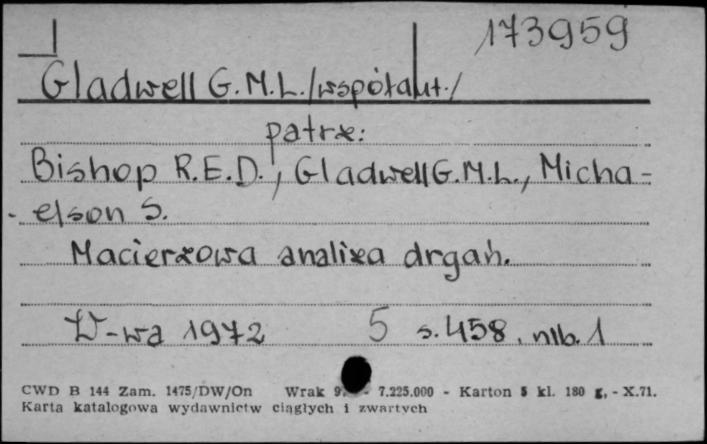 173959
Gladwell G.M.L./współaut./
patrz:
Bishop R.E.D., Gladwell G.M.L., Micha-
elson S.
Macierzowa analiza drgań.
W-wa 1972 5 s. 458, nlb. 1
CWD B 144 Zam. 1475/DW/On Wrak 7.225.000 - Karton 5 kl. 180 g, - X.71.
Karta katalogowa wydawnictw ciągłych i zwartych